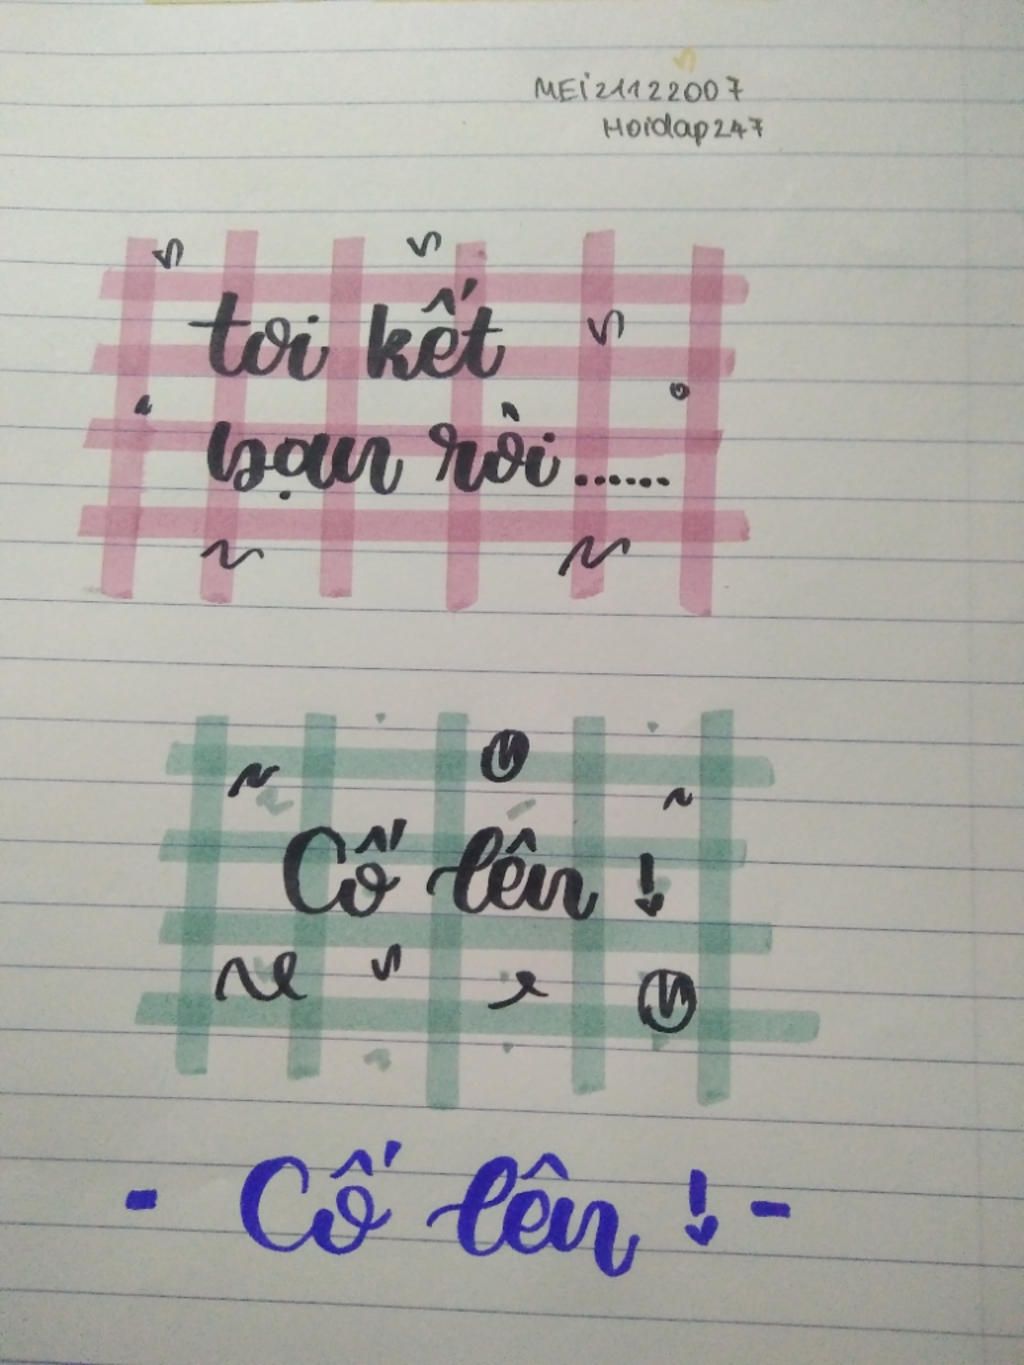 MEi21122007
Hoidap247
tơi kết
bạn rồi......
Cố lên !
- Cố lên ! -